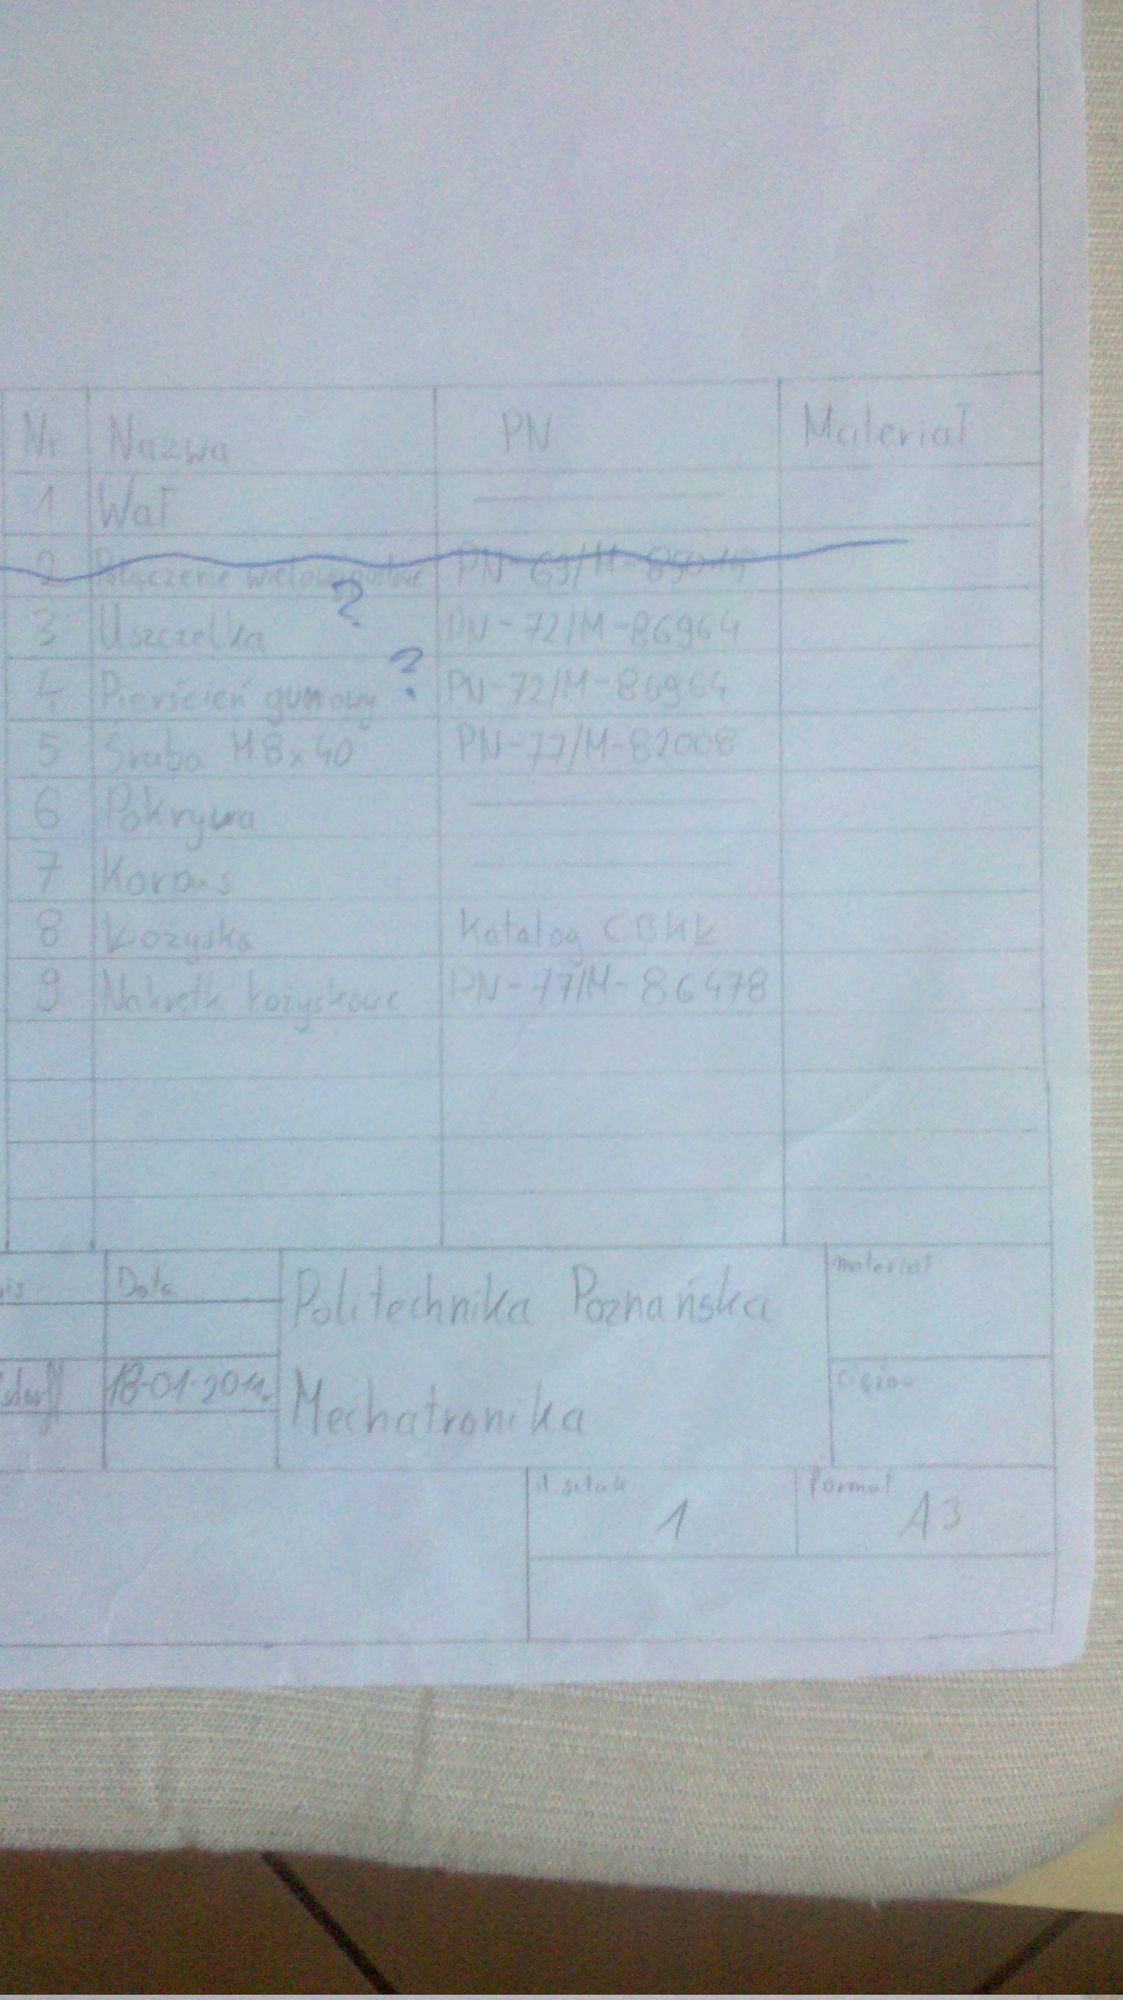 Nr Nazwa PN Materiał
1 Wał
2 Połączenie wielowypustowe PN-69/M-85015
?
3 Uszczelka PN-72/M-86964
?
4 Pierścień gumowy PN-72/M-86964
5 Śruba M8x40 PN-77/M-82008
6 Pokrywa
7 Korpus
8 Łożyska Katalog CBKŁ
9 Nakrętki łożyskowe PN-77/M-86478
Data Politechnika Poznańska materiał
18-01-2011r. Mechatronika
il sztuk 1 Format A3